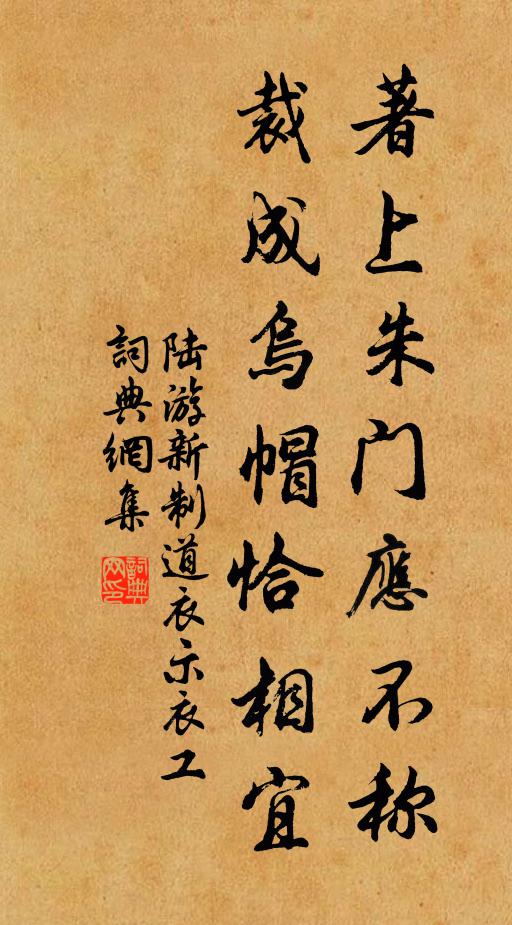 著上朱门應不称
裁成烏帽恰相宜
陆游新制道衣示衣工
詞典網集
詞典网印